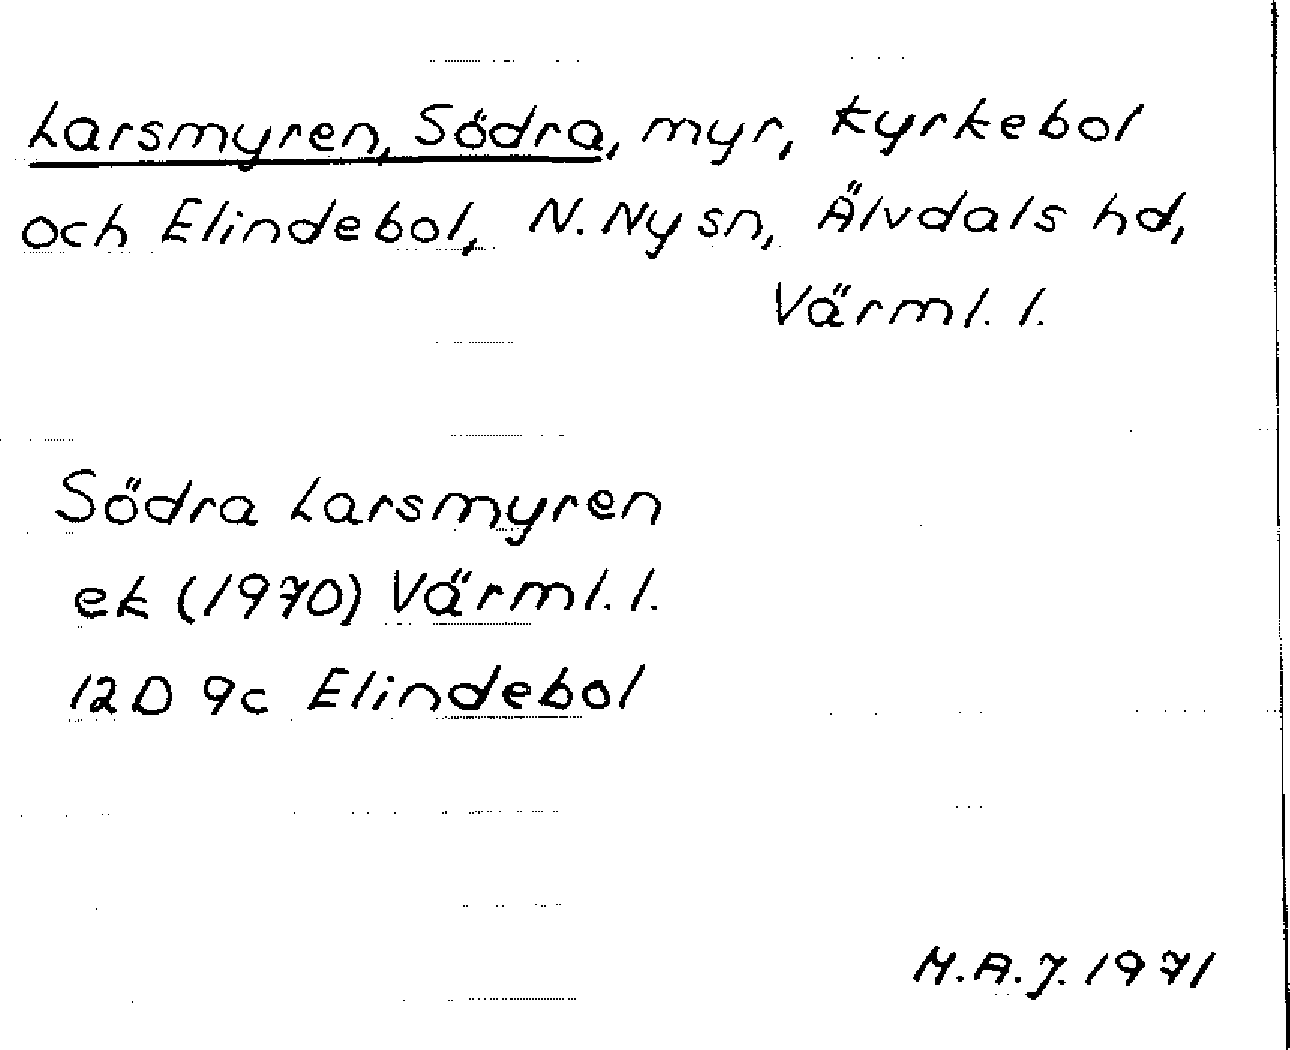 Larsmyren, Södra, myr, Kyrkebol
och Elindebol, N. Ny sn, Älvdals hd,
Värml. l.
Södra Larsmyren
ek (1970) Värml. l.
12D 9c Elindebol
M.A.J. 1971